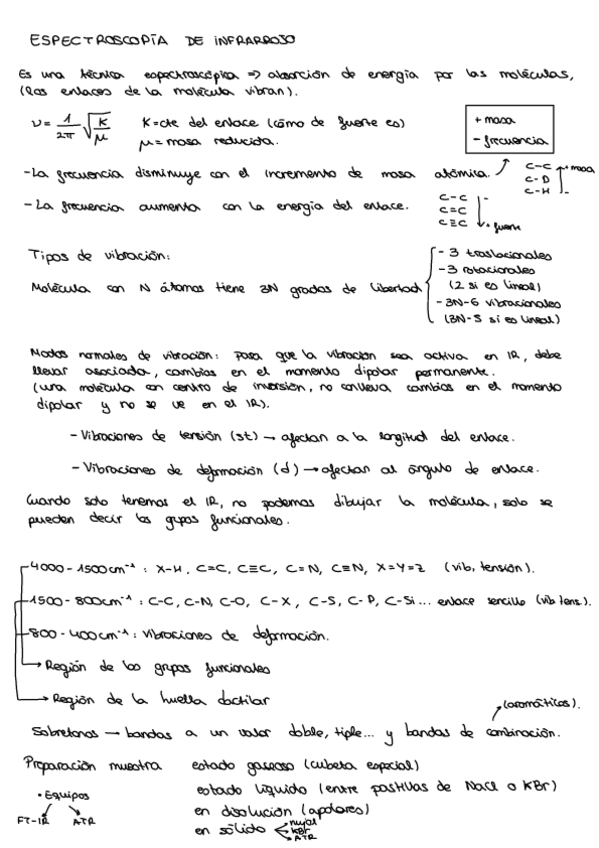 ESPECTROSCOPÍA DE INFRARROJO
Es una técnica espectroscópica => absorción de energía por las moléculas,
(los enlaces de la molécula vibran).
ν = 1/2π √K/μ K=cte del enlace (cómo de fuerte es)
μ = masa reducida.
+ masa
- frecuencia
- La frecuencia disminuye con el incremento de masa atómica.
C-C + masa
C-D
C-H -
- La frecuencia aumenta con la energía del enlace.
C-C -
C=C
C≡C + fuerte
Tipos de vibración:
Molécula con N átomos tiene 3N grados de libertad
- 3 traslacionales
- 3 rotacionales
(2 si es lineal)
- 3N-6 vibracionales
(3N-5 si es lineal)
Modos normales de vibración: para que la vibración sea activa en IR, debe
llevar asociada, cambios en el momento dipolar permanente.
(una molécula con centro de inversión, no conlleva cambios en el momento
dipolar y no se ve en el IR).
- Vibraciones de tensión (st) → afectan a la longitud del enlace.
- Vibraciones de deformación (d) → afectan al ángulo de enlace.
Cuando solo tenemos el IR, no podemos dibujar la molécula, solo se
pueden decir los grupos funcionales.
4000 - 1500 cm⁻¹ : X-H, C=C, C≡C, C=N, C≡N, X=Y=Z (vib, tensión).
1500 - 800 cm⁻¹ : C-C, C-N, C-O, C-X, C-S, C-P, C-Si... enlace sencillo (vib tens.).
800 - 400 cm⁻¹ : Vibraciones de deformación.
→ Región de los grupos funcionales
→ Región de la huella dactilar
(aromáticos).
Sobretonos → bandas a un valor doble, tiple... y bandas de combinación.
Preparación muestra estado gaseoso (cubeta especial)
• Equipos estado líquido (entre pastillas de NaCl o KBr)
FT-IR ATR en disolución (apolares)
en sólido nujol
KBr
ATR